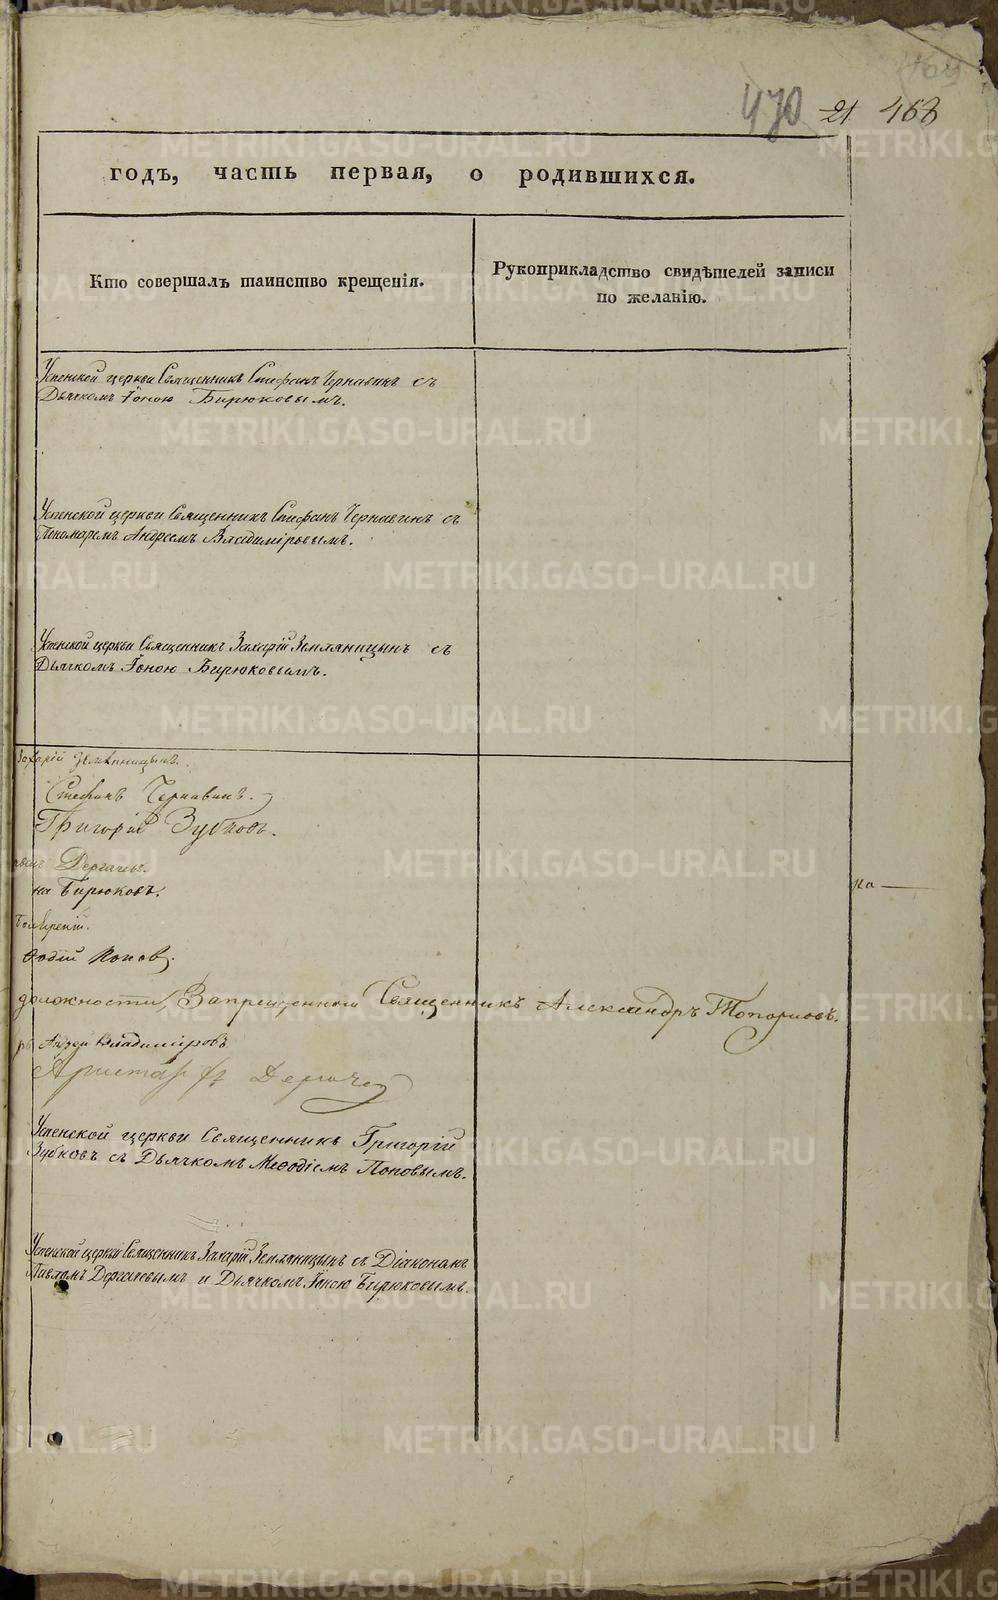 470 21 468
годъ, часть первая, о родившихся.
Кто совершалъ таинство крещенія.
Рукоприкладство свидѣтелей записи
по желанію.
Успенской церкви Священникъ Стефанъ Чернавинъ съ
Дьячкомъ Іоною Бирюковымъ.
Успенской церкви Священникъ Стефанъ Чернавинъ съ
Пономаремъ Андреемъ Владиміровымъ.
Успенской церкви Священникъ Захарій Земляницынъ съ
Дьячкомъ Іоною Бирюковымъ.
Захарій Земляницынъ.
Стефанъ Чернавинъ.
Григорій Зубковъ.
Дергачевъ.
на Бирюковъ.
ѳодій Поповъ.
должности, Запрещенной Священникъ Александръ Топорковъ.
ръ Андрей Владиміровъ
Аристархъ Дергачевъ
на
Успенской церкви Священникъ Григорій
Зубковъ съ Дьячкомъ Меѳодіемъ Поповымъ.
Успенской церкви Священникъ Захарій Земляницынъ съ Діакономъ
Павломъ Дергачевымъ и Дьячкомъ Іоною Бирюковымъ.
METRIKI.GASO-URAL.RU